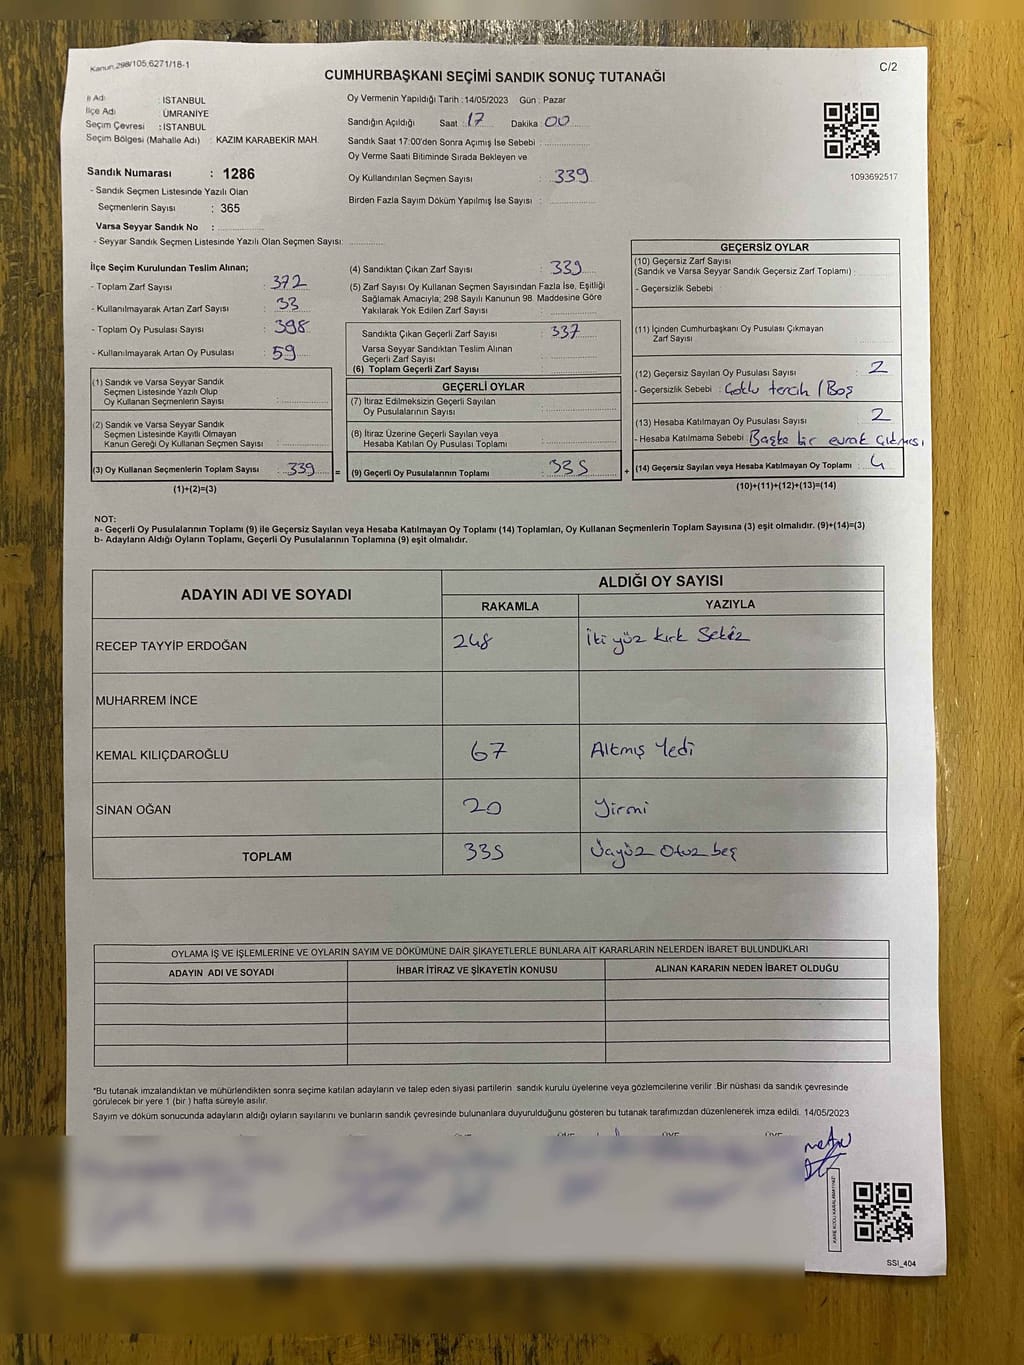 Kanun, 298/105,6271/18-1
C/2
CUMHURBAŞKANI SEÇİMİ SANDIK SONUÇ TUTANAĞI
İl Adı : İSTANBUL
İlçe Adı : ÜMRANİYE
Seçim Çevresi : İSTANBUL
Seçim Bölgesi (Mahalle Adı) : KAZIM KARABEKİR MAH.
Sandık Numarası : 1286
- Sandık Seçmen Listesinde Yazılı Olan
Seçmenlerin Sayısı : 365
Varsa Seyyar Sandık No :
- Seyyar Sandık Seçmen Listesinde Yazılı Olan Seçmen Sayısı:
Oy Vermenin Yapıldığı Tarih :14/05/2023 Gün : Pazar
Sandığın Açıldığı Saat :17 Dakika :00
Sandık Saat 17:00'den Sonra Açımış İse Sebebi :
Oy Verme Saati Bitiminde Sırada Bekleyen ve
Oy Kullandırılan Seçmen Sayısı : 339
Birden Fazla Sayım Döküm Yapılmış İse Sayısı :
1093692517
İlçe Seçim Kurulundan Teslim Alınan;
- Toplam Zarf Sayısı : 372
- Kullanılmayarak Artan Zarf Sayısı : 33
- Toplam Oy Pusulası Sayısı : 398
- Kullanılmayarak Artan Oy Pusulası : 59
(1) Sandık ve Varsa Seyyar Sandık
Seçmen Listesinde Yazılı Olup
Oy Kullanan Seçmenlerin Sayısı :
(2) Sandık ve Varsa Seyyar Sandık
Seçmen Listesinde Kayıtlı Olmayan
Kanun Gereği Oy Kullanan Seçmen Sayısı :
(3) Oy Kullanan Seçmenlerin Toplam Sayısı : 339 =
(1)+(2)=(3)
(4) Sandıktan Çıkan Zarf Sayısı : 339
(5) Zarf Sayısı Oy Kullanan Seçmen Sayısından Fazla İse, Eşitliği
Sağlamak Amacıyla; 298 Sayılı Kanunun 98. Maddesine Göre
Yakılarak Yok Edilen Zarf Sayısı :
Sandıkta Çıkan Geçerli Zarf Sayısı : 337
Varsa Seyyar Sandıktan Teslim Alınan
Geçerli Zarf Sayısı :
(6) Toplam Geçerli Zarf Sayısı :
GEÇERLİ OYLAR
(7) İtiraz Edilmeksizin Geçerli Sayılan
Oy Pusulalarının Sayısı :
(8) İtiraz Üzerine Geçerli Sayılan veya
Hesaba Katılan Oy Pusulası Toplamı :
(9) Geçerli Oy Pusulalarının Toplamı : 335 +
GEÇERSİZ OYLAR
(10) Geçersiz Zarf Sayısı
(Sandık ve Varsa Seyyar Sandık Geçersiz Zarf Toplamı) :
- Geçersizlik Sebebi :
(11) İçinden Cumhurbaşkanı Oy Pusulası Çıkmayan
Zarf Sayısı :
(12) Geçersiz Sayılan Oy Pusulası Sayısı : 2
- Geçersizlik Sebebi : Çoklu tercih / Boş
(13) Hesaba Katılmayan Oy Pusulası Sayısı : 2
- Hesaba Katılmama Sebebi : Başka bir evrak çıkması
(14) Geçersiz Sayılan veya Hesaba Katılmayan Oy Toplamı : 4
(10)+(11)+(12)+(13)=(14)
NOT:
a- Geçerli Oy Pusulalarının Toplamı (9) ile Geçersiz Sayılan veya Hesaba Katılmayan Oy Toplamı (14) Toplamları, Oy Kullanan Seçmenlerin Toplam Sayısına (3) eşit olmalıdır. (9)+(14)=(3)
b- Adayların Aldığı Oyların Toplamı, Geçerli Oy Pusulalarının Toplamına (9) eşit olmalıdır.
ADAYIN ADI VE SOYADI
ALDIĞI OY SAYISI
RAKAMLA YAZIYLA
RECEP TAYYİP ERDOĞAN 248 İki yüz kırk Sekiz
MUHARREM İNCE
KEMAL KILIÇDAROĞLU 67 Altmış Yedi
SİNAN OĞAN 20 Yirmi
TOPLAM 335 Üçyüz Otuz beş
OYLAMA İŞ VE İŞLEMLERİNE VE OYLARIN SAYIM VE DÖKÜMÜNE DAİR ŞİKAYETLERLE BUNLARA AİT KARARLARIN NELERDEN İBARET BULUNDUKLARI
ADAYIN ADI VE SOYADI İHBAR İTİRAZ VE ŞİKAYETİN KONUSU ALINAN KARARIN NEDEN İBARET OLDUĞU
*Bu tutanak imzalandıktan ve mühürlendikten sonra seçime katılan adayların ve talep eden siyasi partilerin sandık kurulu üyelerine veya gözlemcilerine verilir .Bir nüshası da sandık çevresinde
görülecek bir yere 1 (bir ) hafta süreyle asılır.
Sayım ve döküm sonucunda adayların aldığı oyların sayılarını ve bunların sandık çevresinde bulunanlara duyurulduğunu gösteren bu tutanak tarafımızdan düzenlenerek imza edildi. 14/05/2023
SSI_404